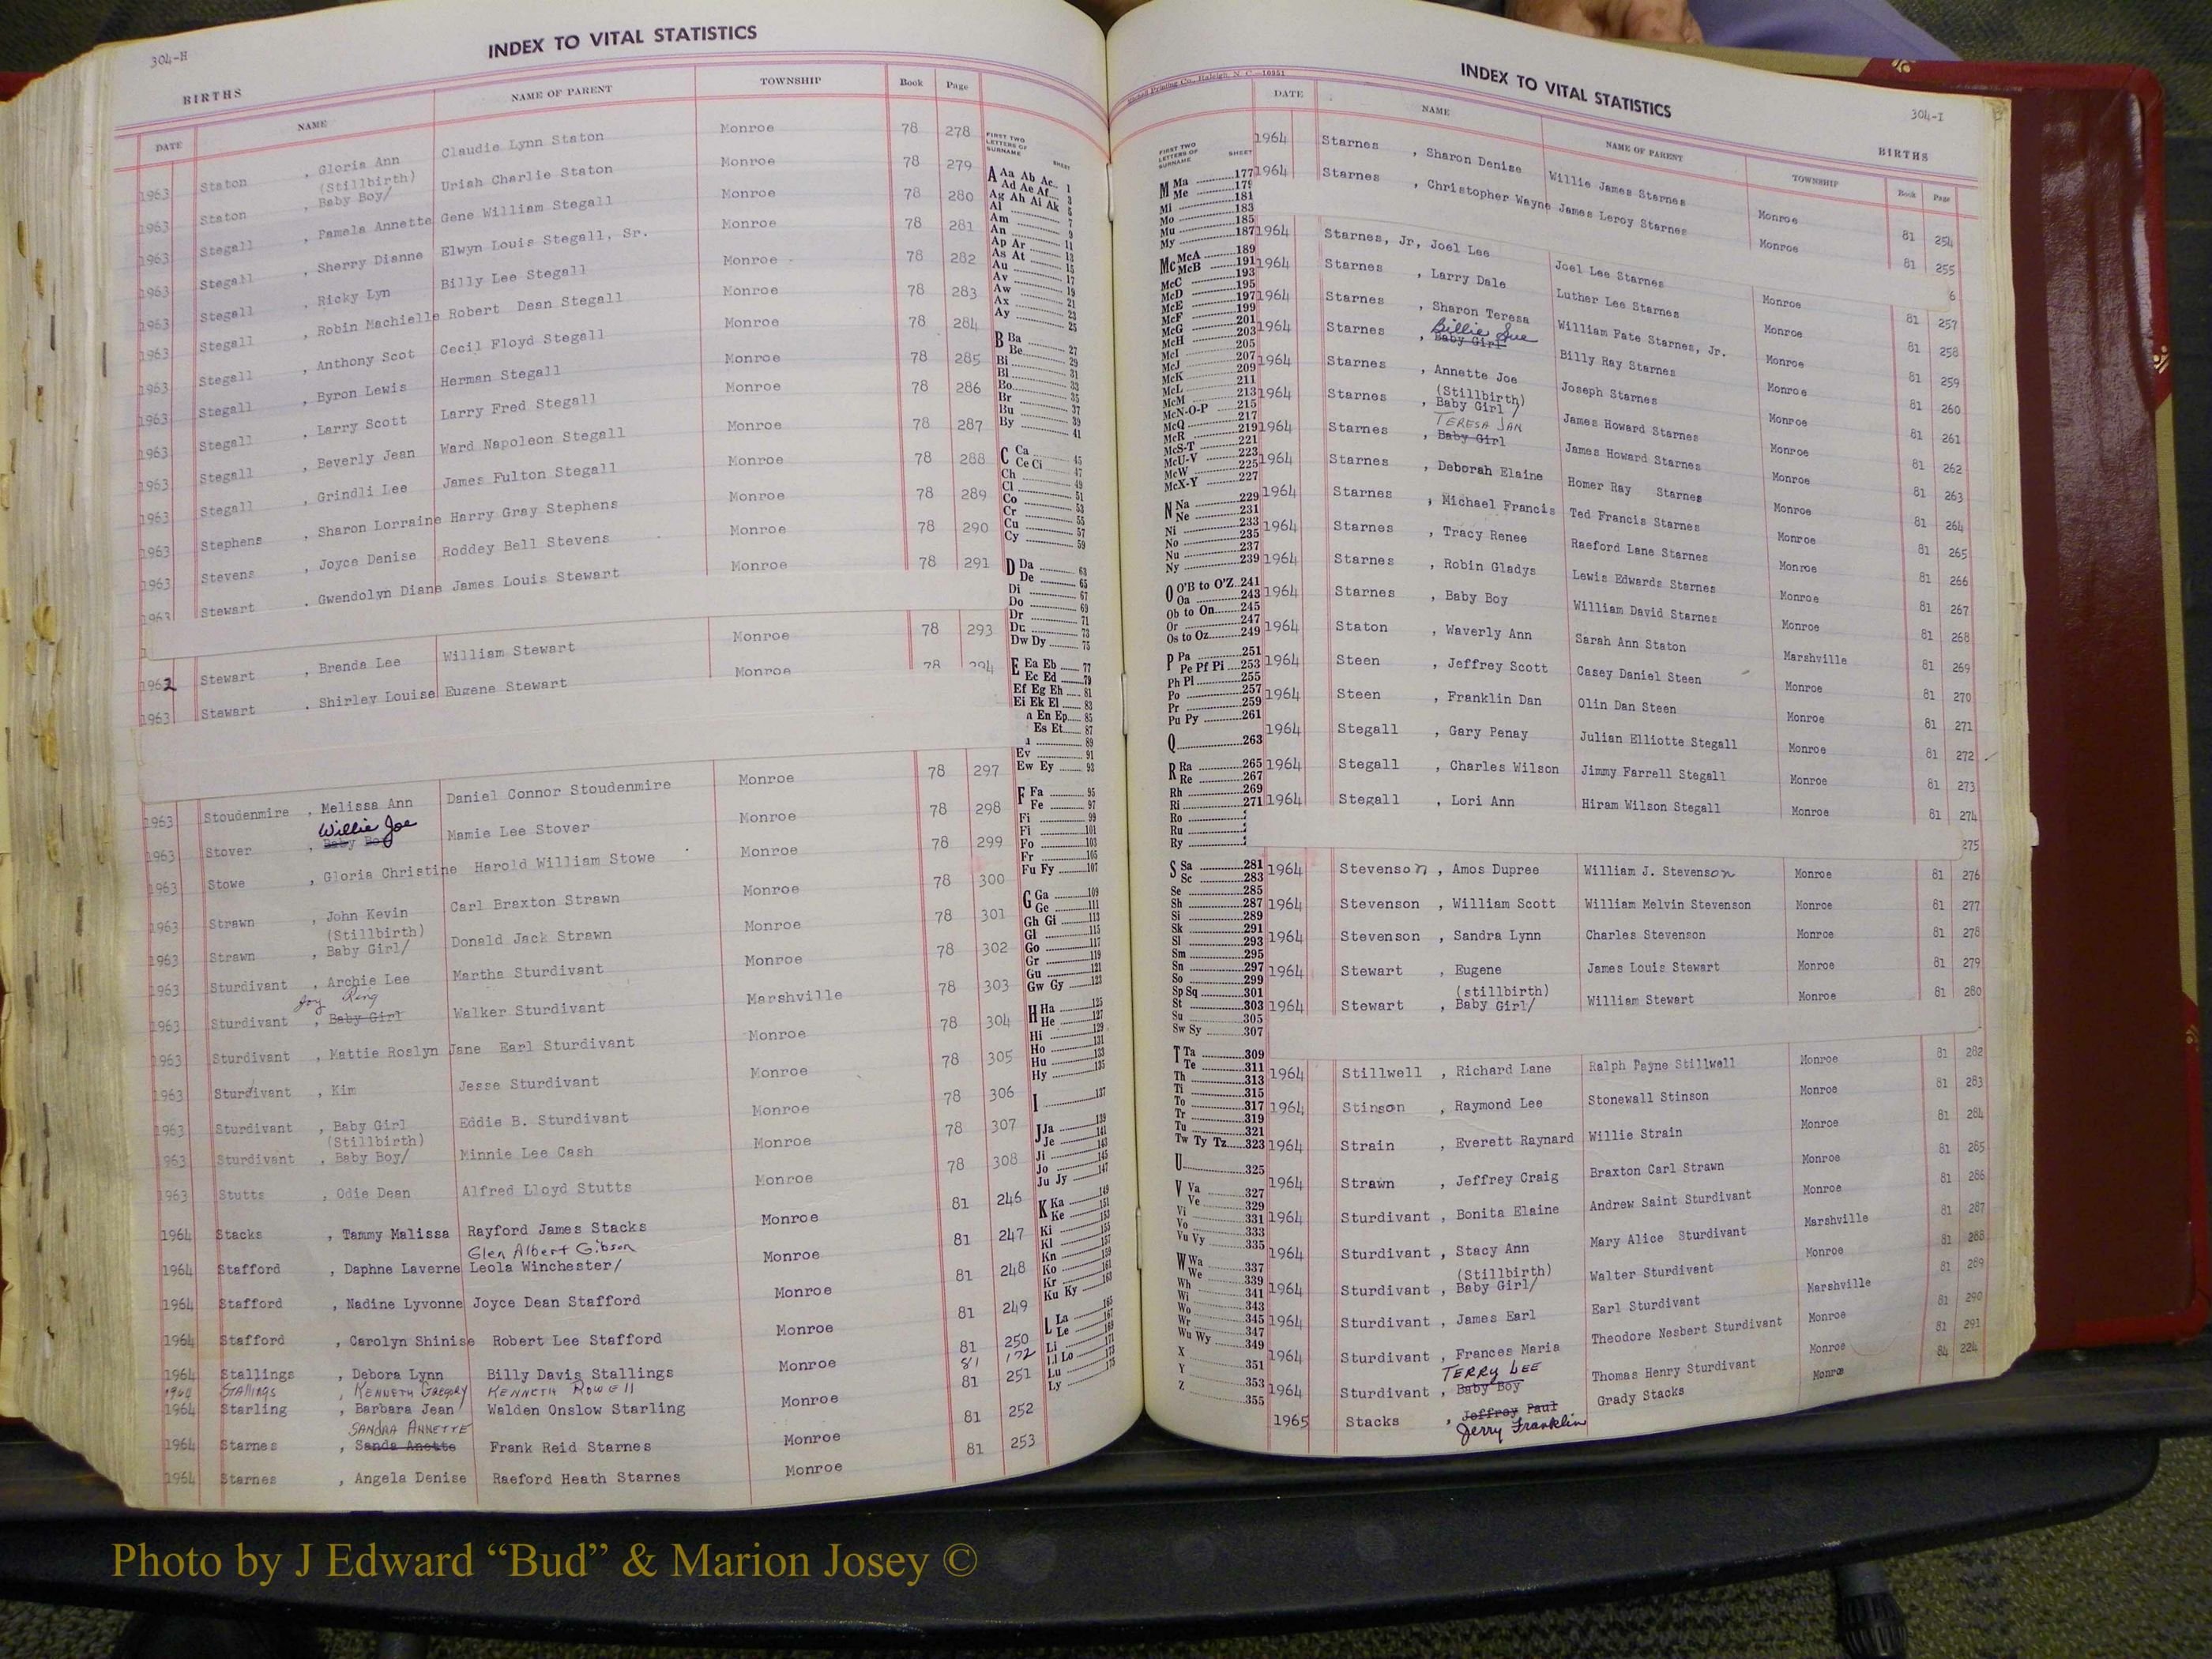 304-H
INDEX TO VITAL STATISTICS
BIRTHS
DATE NAME NAME OF PARENT TOWNSHIP Book Page
1963 Staton , Gloria Ann Claudie Lynn Staton Monroe 78 278
(Stillbirth)
1963 Staton , Baby Boy/ Uriah Charlie Staton Monroe 78 279
1963 Stegall , Pamela Annette Gene William Stegall Monroe 78 280
1963 Stegall , Sherry Dianne Elwyn Louis Stegall, Sr. Monroe 78 281
1963 Stegall , Ricky Lyn Billy Lee Stegall Monroe 78 282
1963 Stegall , Robin Machielle Robert Dean Stegall Monroe 78 283
1963 Stegall , Anthony Scot Cecil Floyd Stegall Monroe 78 284
1963 Stegall , Byron Lewis Herman Stegall Monroe 78 285
1963 Stegall , Larry Scott Larry Fred Stegall Monroe 78 286
1963 Stegall , Beverly Jean Ward Napoleon Stegall Monroe 78 287
1963 Stegall , Grindli Lee James Fulton Stegall Monroe 78 288
1963 Stephens , Sharon Lorraine Harry Gray Stephens Monroe 78 289
1963 Stevens , Joyce Denise Roddey Bell Stevens Monroe 78 290
1963 Stewart , Gwendolyn Diane James Louis Stewart Monroe 78 291
1962 Stewart , Brenda Lee William Stewart Monroe 78 293
1963 Stewart , Shirley Louise Eugene Stewart Monroe 78 294
1963 Stoudenmire , Melissa Ann Daniel Connor Stoudenmire Monroe 78 297
Willie Joe
1963 Stover , Baby Boy Mamie Lee Stover Monroe 78 298
1963 Stowe , Gloria Christine Harold William Stowe Monroe 78 299
1963 Strawn , John Kevin Carl Braxton Strawn Monroe 78 300
(Stillbirth)
1963 Strawn , Baby Girl/ Donald Jack Strawn Monroe 78 301
1963 Sturdivant , Archie Lee Martha Sturdivant Monroe 78 302
Joy Reng
1963 Sturdivant , Baby Girl Walker Sturdivant Marshville 78 303
1963 Sturdivant , Mattie Roslyn Jane Earl Sturdivant Monroe 78 304
1963 Sturdivant , Kim Jesse Sturdivant Monroe 78 305
1963 Sturdivant , Baby Girl Eddie B. Sturdivant Monroe 78 306
(Stillbirth)
1963 Sturdivant , Baby Boy/ Minnie Lee Cash Monroe 78 307
1963 Stutts , Odie Dean Alfred Lloyd Stutts Monroe 78 308
1964 Stacks , Tammy Malissa Rayford James Stacks Monroe 81 246
Glen Albert Gibson
1964 Stafford , Daphne Laverne Leola Winchester/ Monroe 81 247
1964 Stafford , Nadine Lyvonne Joyce Dean Stafford Monroe 81 248
1964 Stafford , Carolyn Shinise Robert Lee Stafford Monroe 81 249
1964 Stallings , Debora Lynn Billy Davis Stallings Monroe 81 250
1964 Stallings , Kenneth Gregory Kenneth Rowell 81 172
1964 Starling , Barbara Jean Walden Onslow Starling Monroe 81 251
SANDRA ANNETTE
1964 Starnes , Sande Anette Frank Reid Starnes Monroe 81 252
1964 Starnes , Angela Denise Raeford Heath Starnes Monroe 81 253
FIRST TWO LETTERS OF SURNAME SHEET
A Aa Ab Ac 1
Ad Ae Af 3
Ag Ah Ai Ak 5
Al 7
Am 9
An 11
Ap Ar 13
As At 15
Au 17
Av 19
Aw 21
Ax 23
Ay 25
B Ba 27
Be 29
Bi 31
Bl 33
Bo 35
Br 37
Bu 39
By 41
C Ca 45
Ce Ci 47
Ch 49
Cl 51
Co 53
Cr 55
Cu 57
Cy 59
D Da 63
De 65
Di 67
Do 69
Dr 71
Du 73
Dw Dy 75
E Ea Eb 77
Ec Ed 79
Ef Eg Eh 81
Ei Ek El 83
n En Ep 85
Es Et 87
89
Ev 91
Ew Ey 93
F Fa 95
Fe 97
Fi 99
Fl 101
Fo 103
Fr 105
Fu Fy 107
G Ga 109
Ge 111
Gh Gi 113
Gl 115
Go 117
Gr 119
Gu 121
Gw Gy 123
H Ha 125
He 127
Hi 129
Ho 131
Hu 133
Hy 135
I 137
J Ja 139
Je 141
Ji 143
Jo 145
Ju Jy 147
K Ka 149
Ke 151
Ki 153
Kl 155
Kn 157
Ko 159
Kr 161
Ku Ky 163
L La 165
Le 167
Li 169
Ll Lo 171
Lu 173
Ly 175
Printing Co., Raleigh, N. C.—10951
INDEX TO VITAL STATISTICS
304-I
BIRTHS
DATE NAME NAME OF PARENT TOWNSHIP Book Page
FIRST TWO LETTERS OF SURNAME SHEET
M Ma 177
Me 179
Mi 181
183
Mo 185
Mu 187
My
Mc McA 189
McB 191
McC 193
McD 195
McE 197
McF 199
McG 201
McH 203
McI 205
McJ 207
McK 209
McL 211
McM 213
McN-O-P 215
McQ 217
McR 219
McS-T 221
McU-V 223
McW 225
McX-Y 227
N Na 229
Ne 231
Ni 233
No 235
Nu 237
Ny 239
O O'B to O'Z 241
Oa 243
Ob to On 245
Or 247
Os to Oz 249
P Pa 251
Pe Pf Pi 253
Ph Pl 255
Po 257
Pr 259
Pu Py 261
Q 263
R Ra 265
Re 267
Rh 269
Ri 271
Ro
Ru
Ry
S Sa 281
Sc 283
Se 285
Sh 287
Si 289
Sk 291
Sl 293
Sm 295
Sn 297
So 299
Sp Sq 301
St 303
Su 305
Sw Sy 307
T Ta 309
Te 311
Th 313
Ti 315
To 317
Tr 319
Tu 321
Tw Ty Tz 323
U 325
V Va 327
Ve 329
Vi 331
Vo 333
Vu Vy 335
W Wa 337
We 339
Wh 341
Wi 343
Wo 345
Wr 347
Wu Wy 349
X 351
Y 353
Z 355
1964 Starnes , Sharon Denise Willie James Starnes Monroe 81 254
1964 Starnes , Christopher Wayne James Leroy Starnes Monroe 81 255
6
1964 Starnes, Jr, Joel Lee Joel Lee Starnes Monroe 81 257
1964 Starnes , Larry Dale Luther Lee Starnes Monroe 81 258
1964 Starnes , Sharon Teresa William Fate Starnes, Jr. Monroe 81 259
Billie Sue
1964 Starnes , Baby Girl Billy Ray Starnes Monroe 81 260
1964 Starnes , Annette Joe Joseph Starnes Monroe 81 261
(Stillbirth)
1964 Starnes , Baby Girl / James Howard Starnes Monroe 81 262
TERESA JAN
1964 Starnes , Baby Girl James Howard Starnes Monroe 81 263
1964 Starnes , Deborah Elaine Homer Ray Starnes Monroe 81 264
1964 Starnes , Michael Francis Ted Francis Starnes Monroe 81 265
1964 Starnes , Tracy Renee Raeford Lane Starnes Monroe 81 266
1964 Starnes , Robin Gladys Lewis Edwards Starnes Monroe 81 267
1964 Starnes , Baby Boy William David Starnes Monroe 81 268
1964 Staton , Waverly Ann Sarah Ann Staton Marshville 81 269
1964 Steen , Jeffrey Scott Casey Daniel Steen Monroe 81 270
1964 Steen , Franklin Dan Olin Dan Steen Monroe 81 271
1964 Stegall , Gary Penay Julian Elliotte Stegall Monroe 81 272
1964 Stegall , Charles Wilson Jimmy Farrell Stegall Monroe 81 273
1964 Stegall , Lori Ann Hiram Wilson Stegall Monroe 81 274
275
1964 Stevenson , Amos Dupree William J. Stevenson Monroe 81 276
1964 Stevenson , William Scott William Melvin Stevenson Monroe 81 277
1964 Stevenson , Sandra Lynn Charles Stevenson Monroe 81 278
1964 Stewart , Eugene James Louis Stewart Monroe 81 279
(stillbirth)
1964 Stewart , Baby Girl/ William Stewart Monroe 81 280
1964 Stillwell , Richard Lane Ralph Payne Stillwell Monroe 81 282
1964 Stinson , Raymond Lee Stonewall Stinson Monroe 81 283
1964 Strain , Everett Raynard Willie Strain Monroe 81 284
1964 Strawn , Jeffrey Craig Braxton Carl Strawn Monroe 81 285
1964 Sturdivant , Bonita Elaine Andrew Saint Sturdivant Monroe 81 286
1964 Sturdivant , Stacy Ann Mary Alice Sturdivant Marshville 81 287
(Stillbirth)
1964 Sturdivant , Baby Girl/ Walter Sturdivant Monroe 81 288
1964 Sturdivant , James Earl Earl Sturdivant Marshville 81 289
1964 Sturdivant , Frances Maria Theodore Nesbert Sturdivant Monroe 81 290
TERRY LEE
1964 Sturdivant , Baby Boy Thomas Henry Sturdivant Monroe 81 291
1965 Stacks , Jeffrey Paul Grady Stacks Monroe 84 224
Jerry Franklin
Photo by J Edward “Bud” & Marion Josey ©